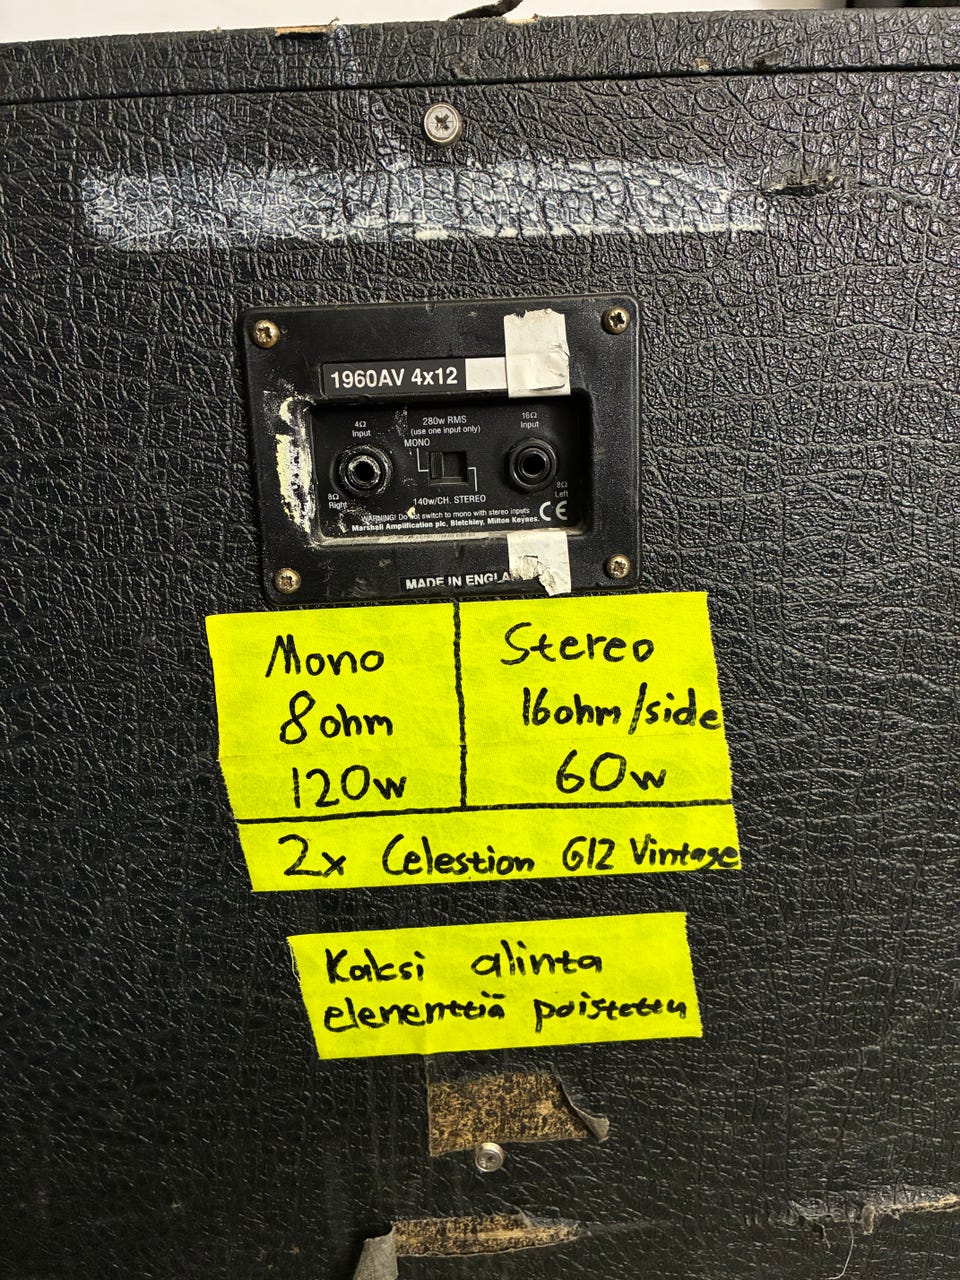 1960AV 4x12
4Ω
Input
280w RMS
(use one input only)
16Ω
Input
MONO
8Ω
Right
8Ω
Left
140w/CH. STEREO
WARNING! Do not switch to mono with stereo inputs
Marshall Amplification plc, Bletchley, Milton Keynes.
CE
MADE IN ENGLA
Mono
8 ohm
120w
Stereo
16ohm/side
60w
2x Celestion G12 Vintage
Kaksi alinta
elementtiä poistettu